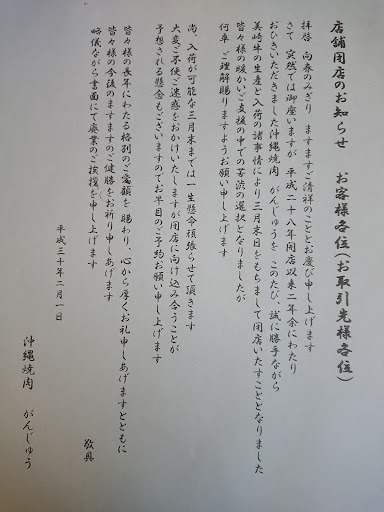 店舗閉店のお知らせ　お客様各位(お取引先様各位)
拝啓 向春のみぎり ますますご清祥のこととお慶び申し上げます
さて 突然では御座いますが 平成二十八年開店以来二年余にわたり
おひきいただきました沖縄焼肉 がんじゅうを このたび、誠に勝手ながら
美崎牛の生産と入荷の諸事情により三月末日をもちまして閉店いたすこととなりました
皆々様の暖かいご支援の中での苦渋の選択となりましたが
何卒、ご理解賜りますようお願い申し上げます
尚、入荷が可能な三月末までは一生懸命頑張らせて頂きます
大変ご不便ご迷惑をおかけいたしますが閉店に向け込み合うことが
予想される懸念もございますのでお早目のご予約お願い申し上げます
皆々様の長年にわたる格別のご高顧を 賜わり、心から厚くお礼申しあげますとともに
皆々様の今後のますますのご健勝をお祈り申しあげます
略儀ながら書面にて廃業のご挨拶を申し上げます
敬具
平成三十年二月一日
沖縄焼肉 がんじゅう